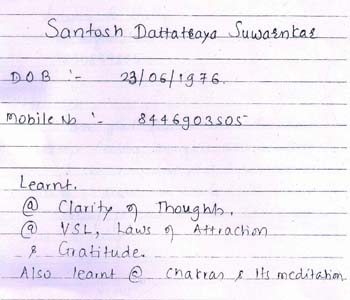 Santosh Dattatraya Suwarnkar
DOB :- 23/06/1976.
Mobile No :- 8446903505
Learnt.
@ Clarity of Thoughts.
@ VSL, Laws of Attraction
& Gratitude.
Also learnt @ Chakras & Its meditation